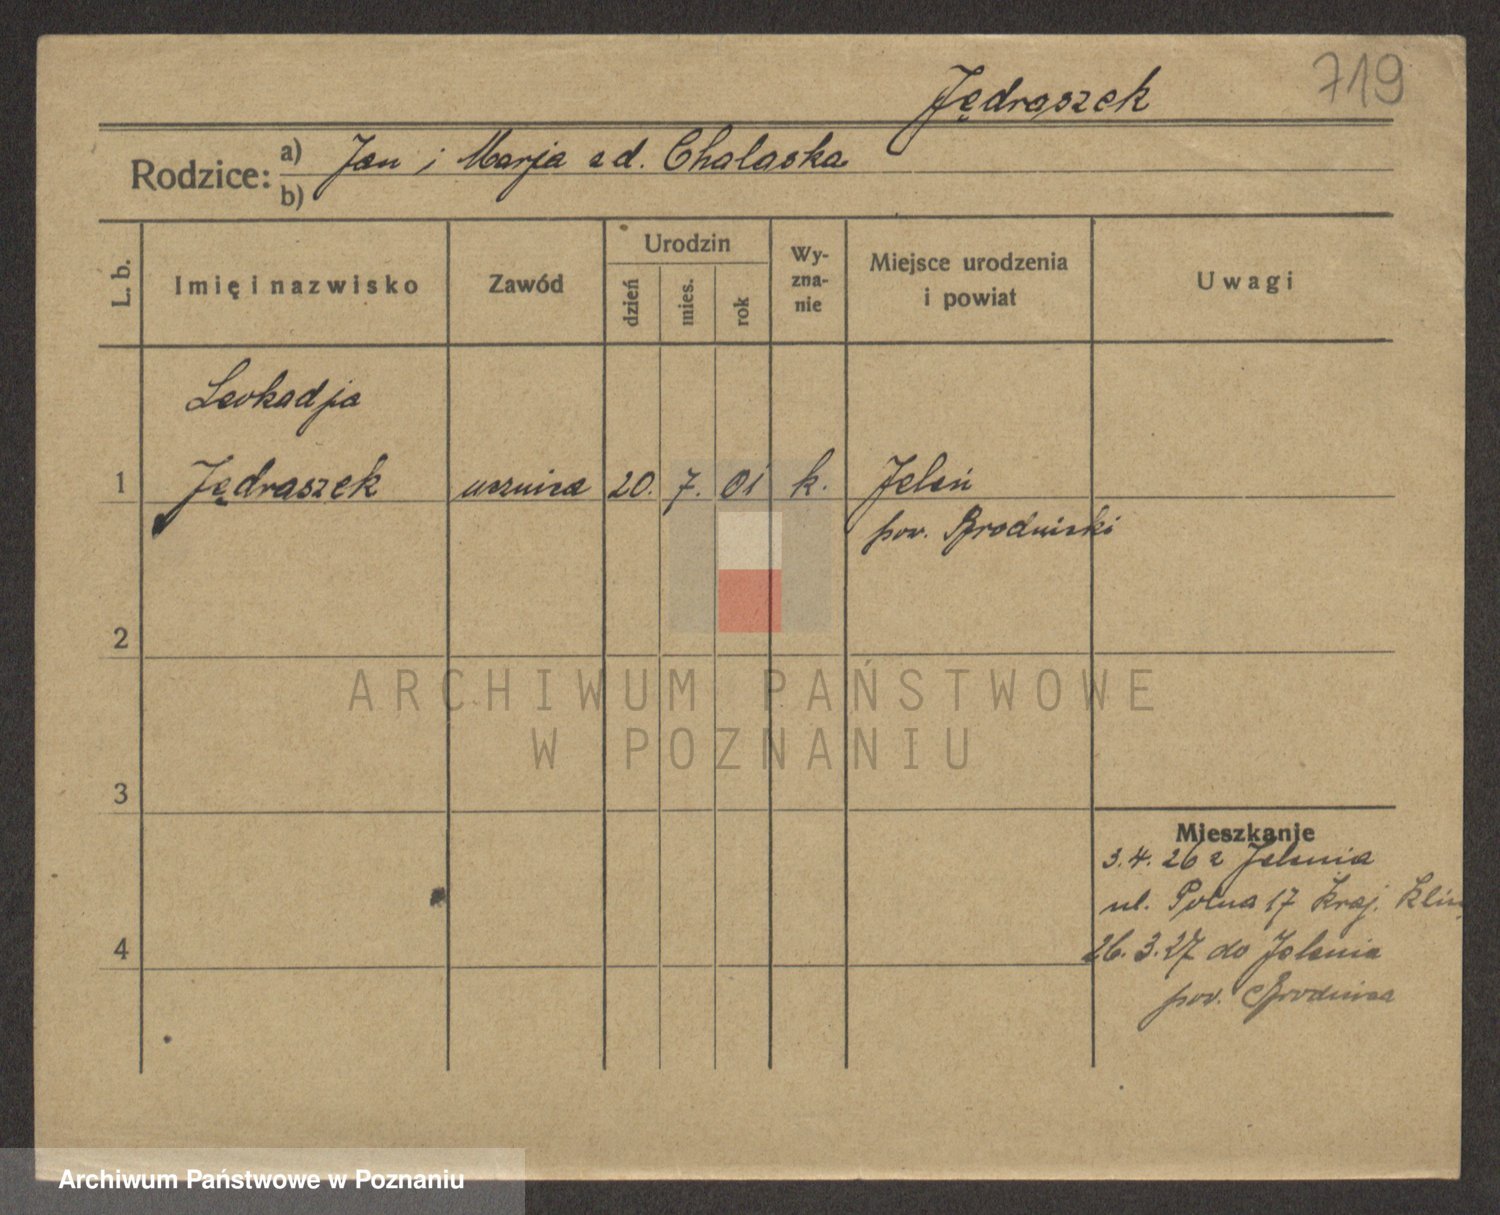 719
Jędraszek
Rodzice: a) Jan i Marja zd. Chalaska
b)
L. b. Imię i nazwisko Zawód Urodzin dzień mies. rok Wyznanie Miejsce urodzenia i powiat Uwagi
Leokadja
1 Jędraszek ucznica 20. 7. 01 k. Jeleń
pow. Brodnicki
2
ARCHIWUM PAŃSTWOWE
W POZNANIU
3
Mieszkanie
3.4.26 z Jelenia
ul. Polna 17 Kraj.
4 26.3.27 do Jelenia
pow. Brodnica
Archiwum Państwowe w Poznaniu